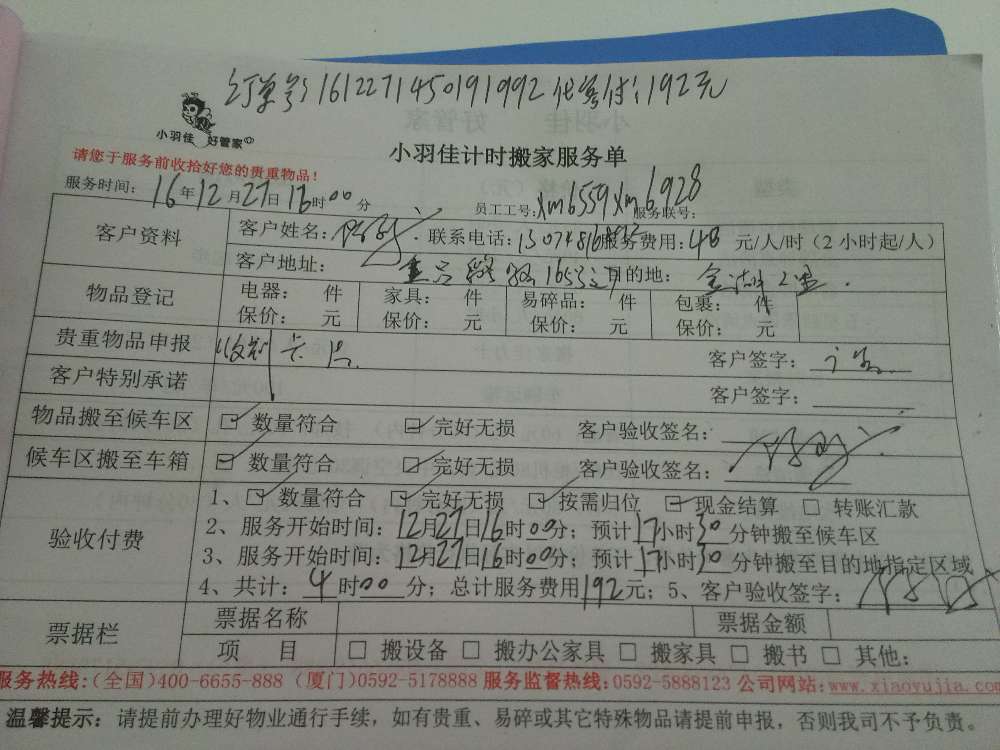 订单号:1612271450191992 代客付:192元
小羽佳 好管家
请您于服务前收拾好您的贵重物品!
小羽佳计时搬家服务单
服务时间: 16年12月27日16时00分 员工工号: xm6559 xm6928 服务联号:
客户资料 客户姓名: 联系电话: 服务费用: 48 元/人/时(2小时起/人)
客户地址: 目的地:
物品登记 电器: 件 家具: 件 易碎品: 件 包裹: 件
保价: 元 保价: 元 保价: 元 保价: 元
贵重物品申报 客户签字:
客户特别承诺 客户签字:
物品搬至候车区 数量符合 完好无损 客户验收签名:
候车区搬至车箱 数量符合 完好无损 客户验收签名:
验收付费 1、 数量符合 完好无损 按需归位 现金结算 转账汇款
2、服务开始时间: 12月27日16时00分; 预计17小时30分钟搬至候车区
3、服务开始时间: 12月27日16时00分; 预计17小时30分钟搬至目的地指定区域
4、共计: 4时00分; 总计服务费用192元; 5、客户验收签字:
票据栏 票据名称 票据金额
项 目 搬设备 搬办公家具 搬家具 搬书 其他:
服务热线:(全国)400-6655-888 (厦门)0592-5178888 服务监督热线:0592-5888123 公司网站:www.xiaoyujia.com
温馨提示: 请提前办理好物业通行手续,如有贵重、易碎或其它特殊物品请提前申报,否则我司不予负责。